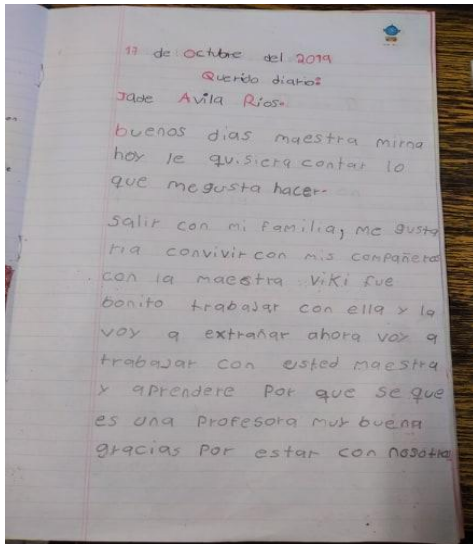 17 de octubre del 2019
Querido diario:
Jade Avila Rios.
buenos dias maestra mirna
hoy le quisiera contar lo
que me gusta hacer.
salir con mi familia, me gusta
ria convivir con mis compañeros
con la maestra viki fue
bonito trabajar con ella y la
voy a extrañar ahora voy a
trabajar con usted maestra
y aprendere por que se que
es una profesora muy buena
gracias por estar con nosotro